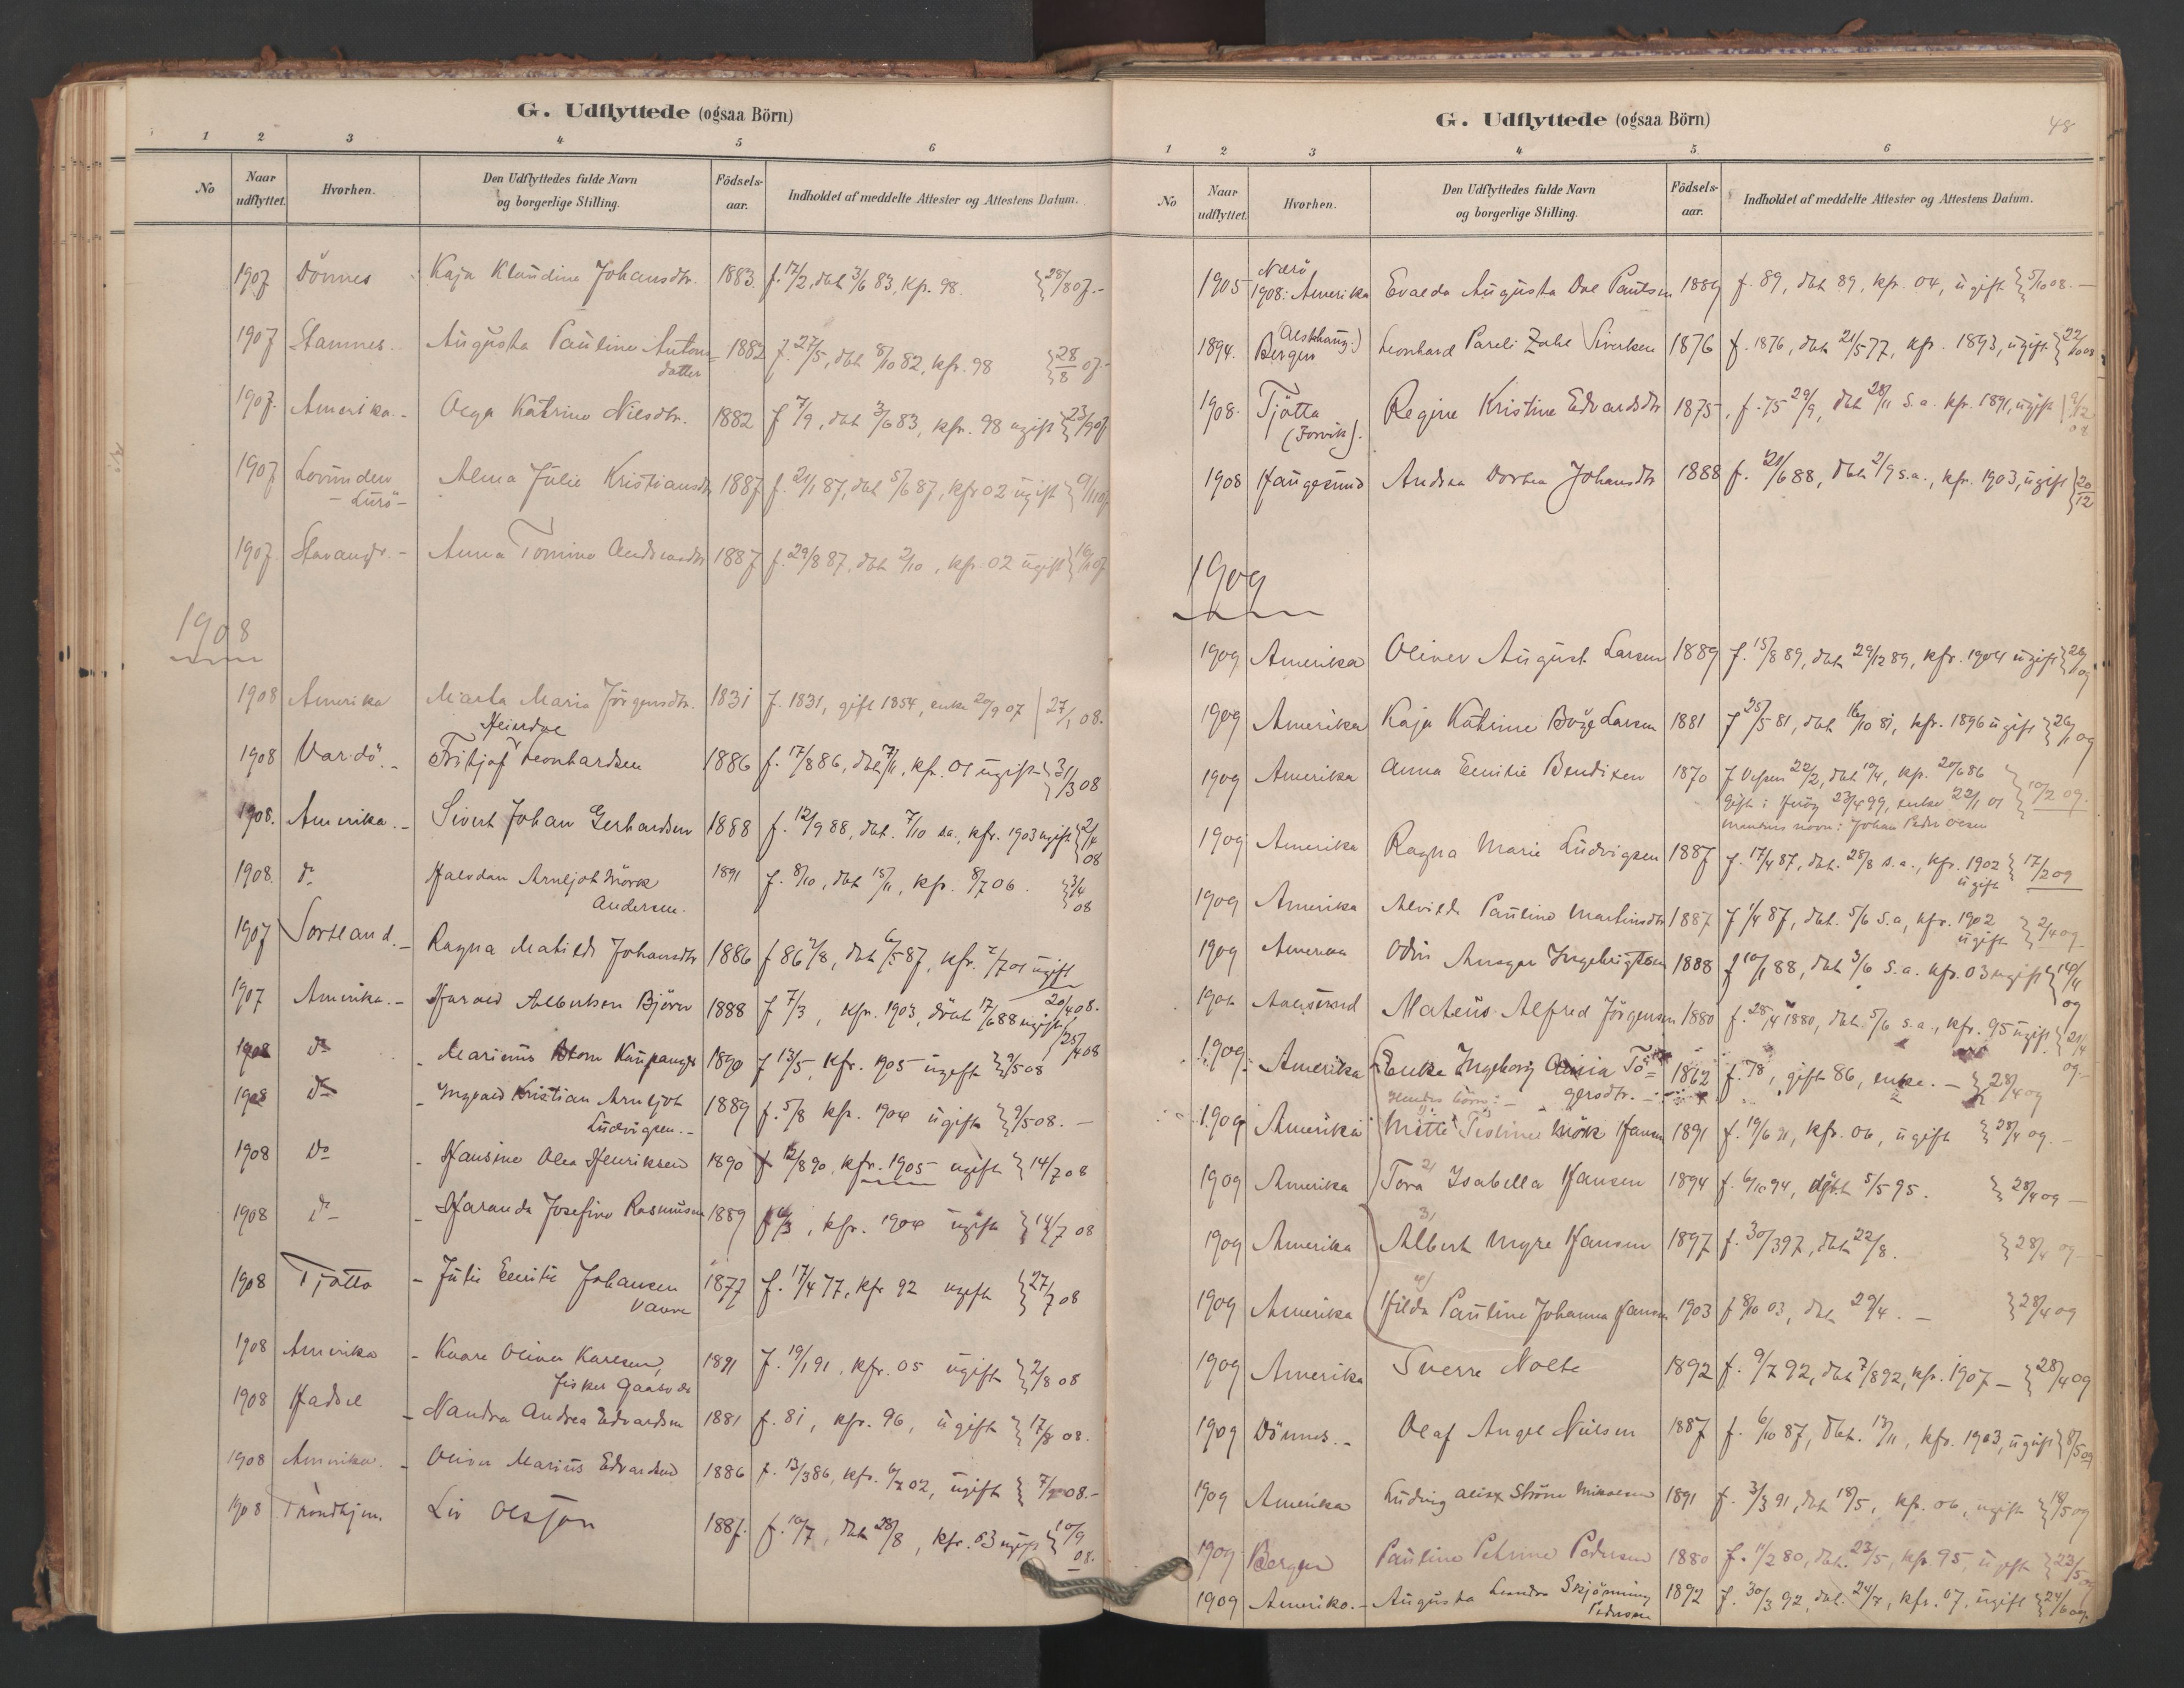 G. Udflyttede (ogsaa Börn)
1 2 3 4 5 6
No
Naar udflyttet.
Hvorhen.
Den Udflyttedes fulde Navn og borgerlige Stilling.
Födsels-aar.
Indholdet af meddelte Attester og Attestens Datum.
1907 Dönnes Kaja Klaudine Johansdtr. 1883 f. 17/2, dbt 3/6 83, kfr. 98. 28/8 07.-
1907 Stamnes. Augusta Pauline Antons 1882 f. 27/5, dbt 8/10 82, kfr. 98 28/8 07.-
datter
1907. Amerika.- Olga Katrine Nilsdtr. 1882 f 7/9, dbt 3/6 83, kfr. 98 ugift 23/9 07
1907 Lovunden Alma Julie Kristiansdtr 1887 f. 21/1 87, dbt 5/6 87, kfr 02 ugift
- Lurö -
1907 Stavangr.- Anna Tomine Andreasdtr 1887 f. 29/8 87, dbt 2/10, kfr. 02 ugift
1908
1908 Amerika Marta Maria Jörgensdtr. 1831 f. 1831, gift 1854, enke 20/9 07 27/1 08.
Heierdal
1908 Vardö.- Fritjof Leonhardsen 1886 f. 17/8 86, dbt 7/11, kfr. 01 ugift 31/3 08
1908. Amerika.- Sivert Johan Gerhardsen 1888 f. 12/9 88, dbt. 7/10 s.a., kfr. 1903 ugift 2/4 08
1908. do Halvdan Arneljot Mörk 1891 f. 8/10, dbt 15/11, kfr. 8/7 06. 3/4 08
Andersen.
1907 Sortland.- Ragna Matilde Johansdtr 1886 f 86 2/8, dbt 6/5 87, kfr. 2/7 01 ugift
20/4 08.
1907 Amerika.- Harald Albertsen Björn 1888 f 7/3, kfr. 1903, döbt 17/6 88 ugift 25/4 08
1908 do - Marinus Kaupangr 1890 f 13/5, kfr. 1905 ugift 9/5 08
1908 do - Ingvald Kristian Arneljot 1889 f. 5/8 kfr. 1904 ugift 9/5 08.-
Ludvigsen.-
1908 Do - Hansine Olea Henriksen 1890 f 12/8 90, kfr. 1905 ugift 14/7 08
1908 do - Haranda Josefine Rasmussen 1889 kfr. 1904 ugift 14/7 08
1908 Tjotto - Julie Emilie Johansen 1877 f. 17/4 77, kfr 92 ugift 27/7 08
1908 Amerika - Kaare Oliver Karlsen, 1891 f. 19/1 91, kfr. 05 ugift 2/8 08
1908 Hadsel - Nandra Andrea Edvardsen 1881 f. 81, kfr. 96, ugift 17/8 08.
1908 Amerika.- Oliver Marius Edvardsen 1886 f. 13/3 86, kfr. 6/7 02, ugift
1908 Trondhjem. Liv Olsson 1887. f. 10/7, dbt 28/8, kfr. 03 ugift 10/9 08.
G. Udflyttede (ogsaa Börn)
48
1 2 3 4 5 6
No
Naar udflyttet.
Hvorhen.
Den Udflyttedes fulde Navn og borgerlige Stilling.
Födsels-aar.
Indholdet af meddelte Attester og Attestens Datum.
Nærö
1905 1908: Amerika Evalda Augusta Dal Paulsen 1889 f. 89, dbt 89, kfr. 04, ugift 5/10 08.-
(Alstahaug:)
1894. Bergen Leonhard Pareli Zahl Sivertsen 1876 f. 1876, dbt 21/5 77, kfr. 1893, ugift
1908. Tjötta Regine Kristine Edvardsdtr 1875. f. 75 29/9, dbt 28/11 s.a. kfr. 1891, ugift
(Forvik).
1908 Haugesund Andrea Dortea Johansdtr 1888 f. 21/6 88, dbt 2/9 s.a., kfr. 1903, ugift 20/12
1909
1909 Amerika Oliver August Larsen 1889 f. 15/8 89, dbt 29/12 89, kfr. 1904 ugift
1909 Amerika Kaja Katrine Larsen 1881 f 25/5 81, dbt 16/10 81, kfr. 1896 ugift 26/1 09
1909 Amerika Anna Emilie Bendixen 1870 f Vefsen 22/2, dbt 10/4, kfr. 20/6 86 10/2 09.
Gift i Heröy 23/4 99, enke 22/1 01
Mandens navn: Johan Peder Olsen
1909 Amerika Ragna Marie Ludvigsen 1887 f. 17/4 87, dbt. 28/8 s.a., kfr. 1902 17/2 09
ugift
1909 Amerika Alvilde Pauline Martinsdtr 1887 f 1/4 87, dbt. 5/6 s.a, kfr. 1902 2/4 09
ugift
1909 Amerika Odin Ansgar Ingebrigtsen 1888 f 10/1 88, dbt 3/6 s.a. kfr. 03 ugift
Aalesund Mateus Alfred Jörgensen 1880 f. 28/4 1880, dbt. 5/6 s.a., kfr. 95 ugift 21/4 09.-
1909. Amerika Enke Ingeborg Tö= 1862 f. gift 86, enke.- 28/4 09
Hendes börn:- gersdtr.-
1909 Amerika 1) Mette Tistine Mörk Hansen 1891 f. 19/6 91, kfr. 06, ugift 28/4 09.-
1909 Amerika 2) Tora Isabella Hansen 1894 f. 6/10 94, döbt 5/5 95. 28/4 09-
1909 Amerika 3) Albert Myre Hansen 1897 f. 30/3 97, dbt 22/8. 28/4 09-
1909 Amerika 4) Hilda Pauline Johanna Hansen 1903 f 8/10 03, dbt 29/4.- 28/4 09
1909 Amerika Sverre Nolte 1892 f. 9/7 92, dbt 7/8 92, kfr. 1907- 28/4 09
1909 Dönnes.- Olaf Angel Nilsen 1887 f. 6/10 87, dbt. 13/11, kfr. 1903, ugift 8/5 09
1909 Amerika Ström Mikalsen 1891 f. 3/3 91, dbt 18/5, kfr. 06, ugift 18/5 09
1909 Bergen Pauline Petrine Pedersen 1880 f. 11/2 80, dbt. 23/5, kfr. 95, ugift 23/5 09
1909 Amerika.- Augusta Leandra Skjönning 1892 f. 30/3 92, dbt. 24/7, kfr. 07, ugift 24/6 09.
Pedersen